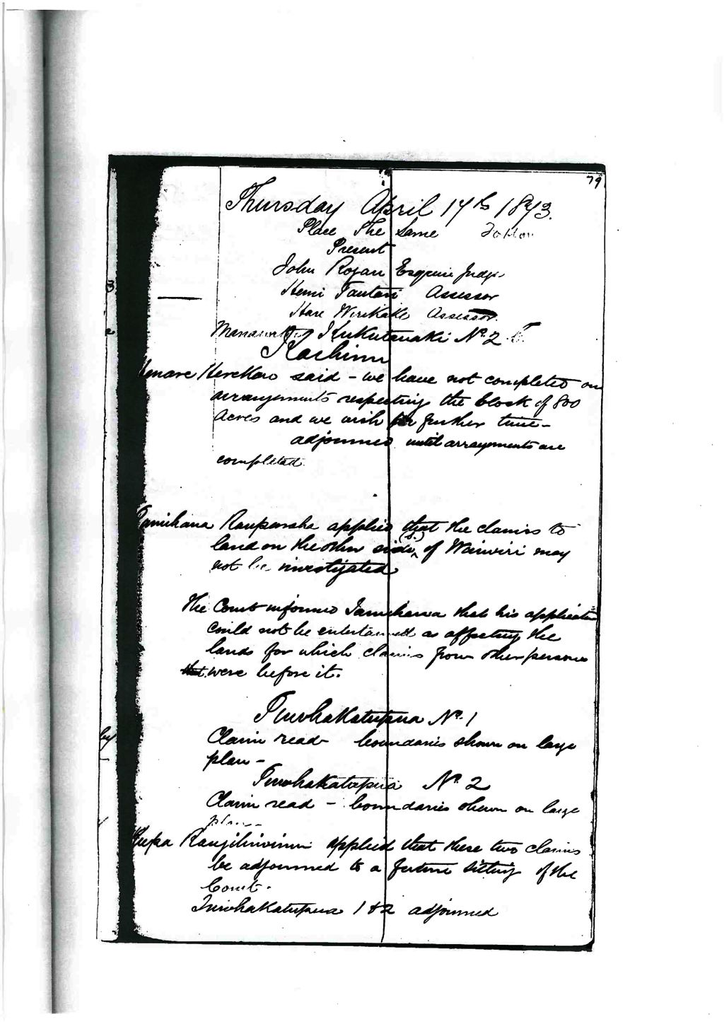 79
Thursday April 17th 1873.
Place The same
Present
John Rogan Esquire Judge
Hemi Tautari Assessor
Hare Wirikake Assessor
Kukutauaki No. 2
said - we have not completed our
arrangements respecting the block of 800
acres and we wish for further time -
adjourned until arrangements are
completed
Tamihana Rauparaha applied that the claims to
land on the other side (s.) of Waiwiri may
not be investigated
The Court informed Tamihana that his application
could not be entertained as affecting the
lands for which claims from other persons
that were before it.
Tuwhakatupua No. 1
Claim read - boundaries shown on large
plan -
Tuwhakatupua No. 2
Claim read - boundaries shown on large
plan
applied that these two claims
be adjourned to a future sitting of the
Court.
Tuwhakatupua 1 & 2 adjourned